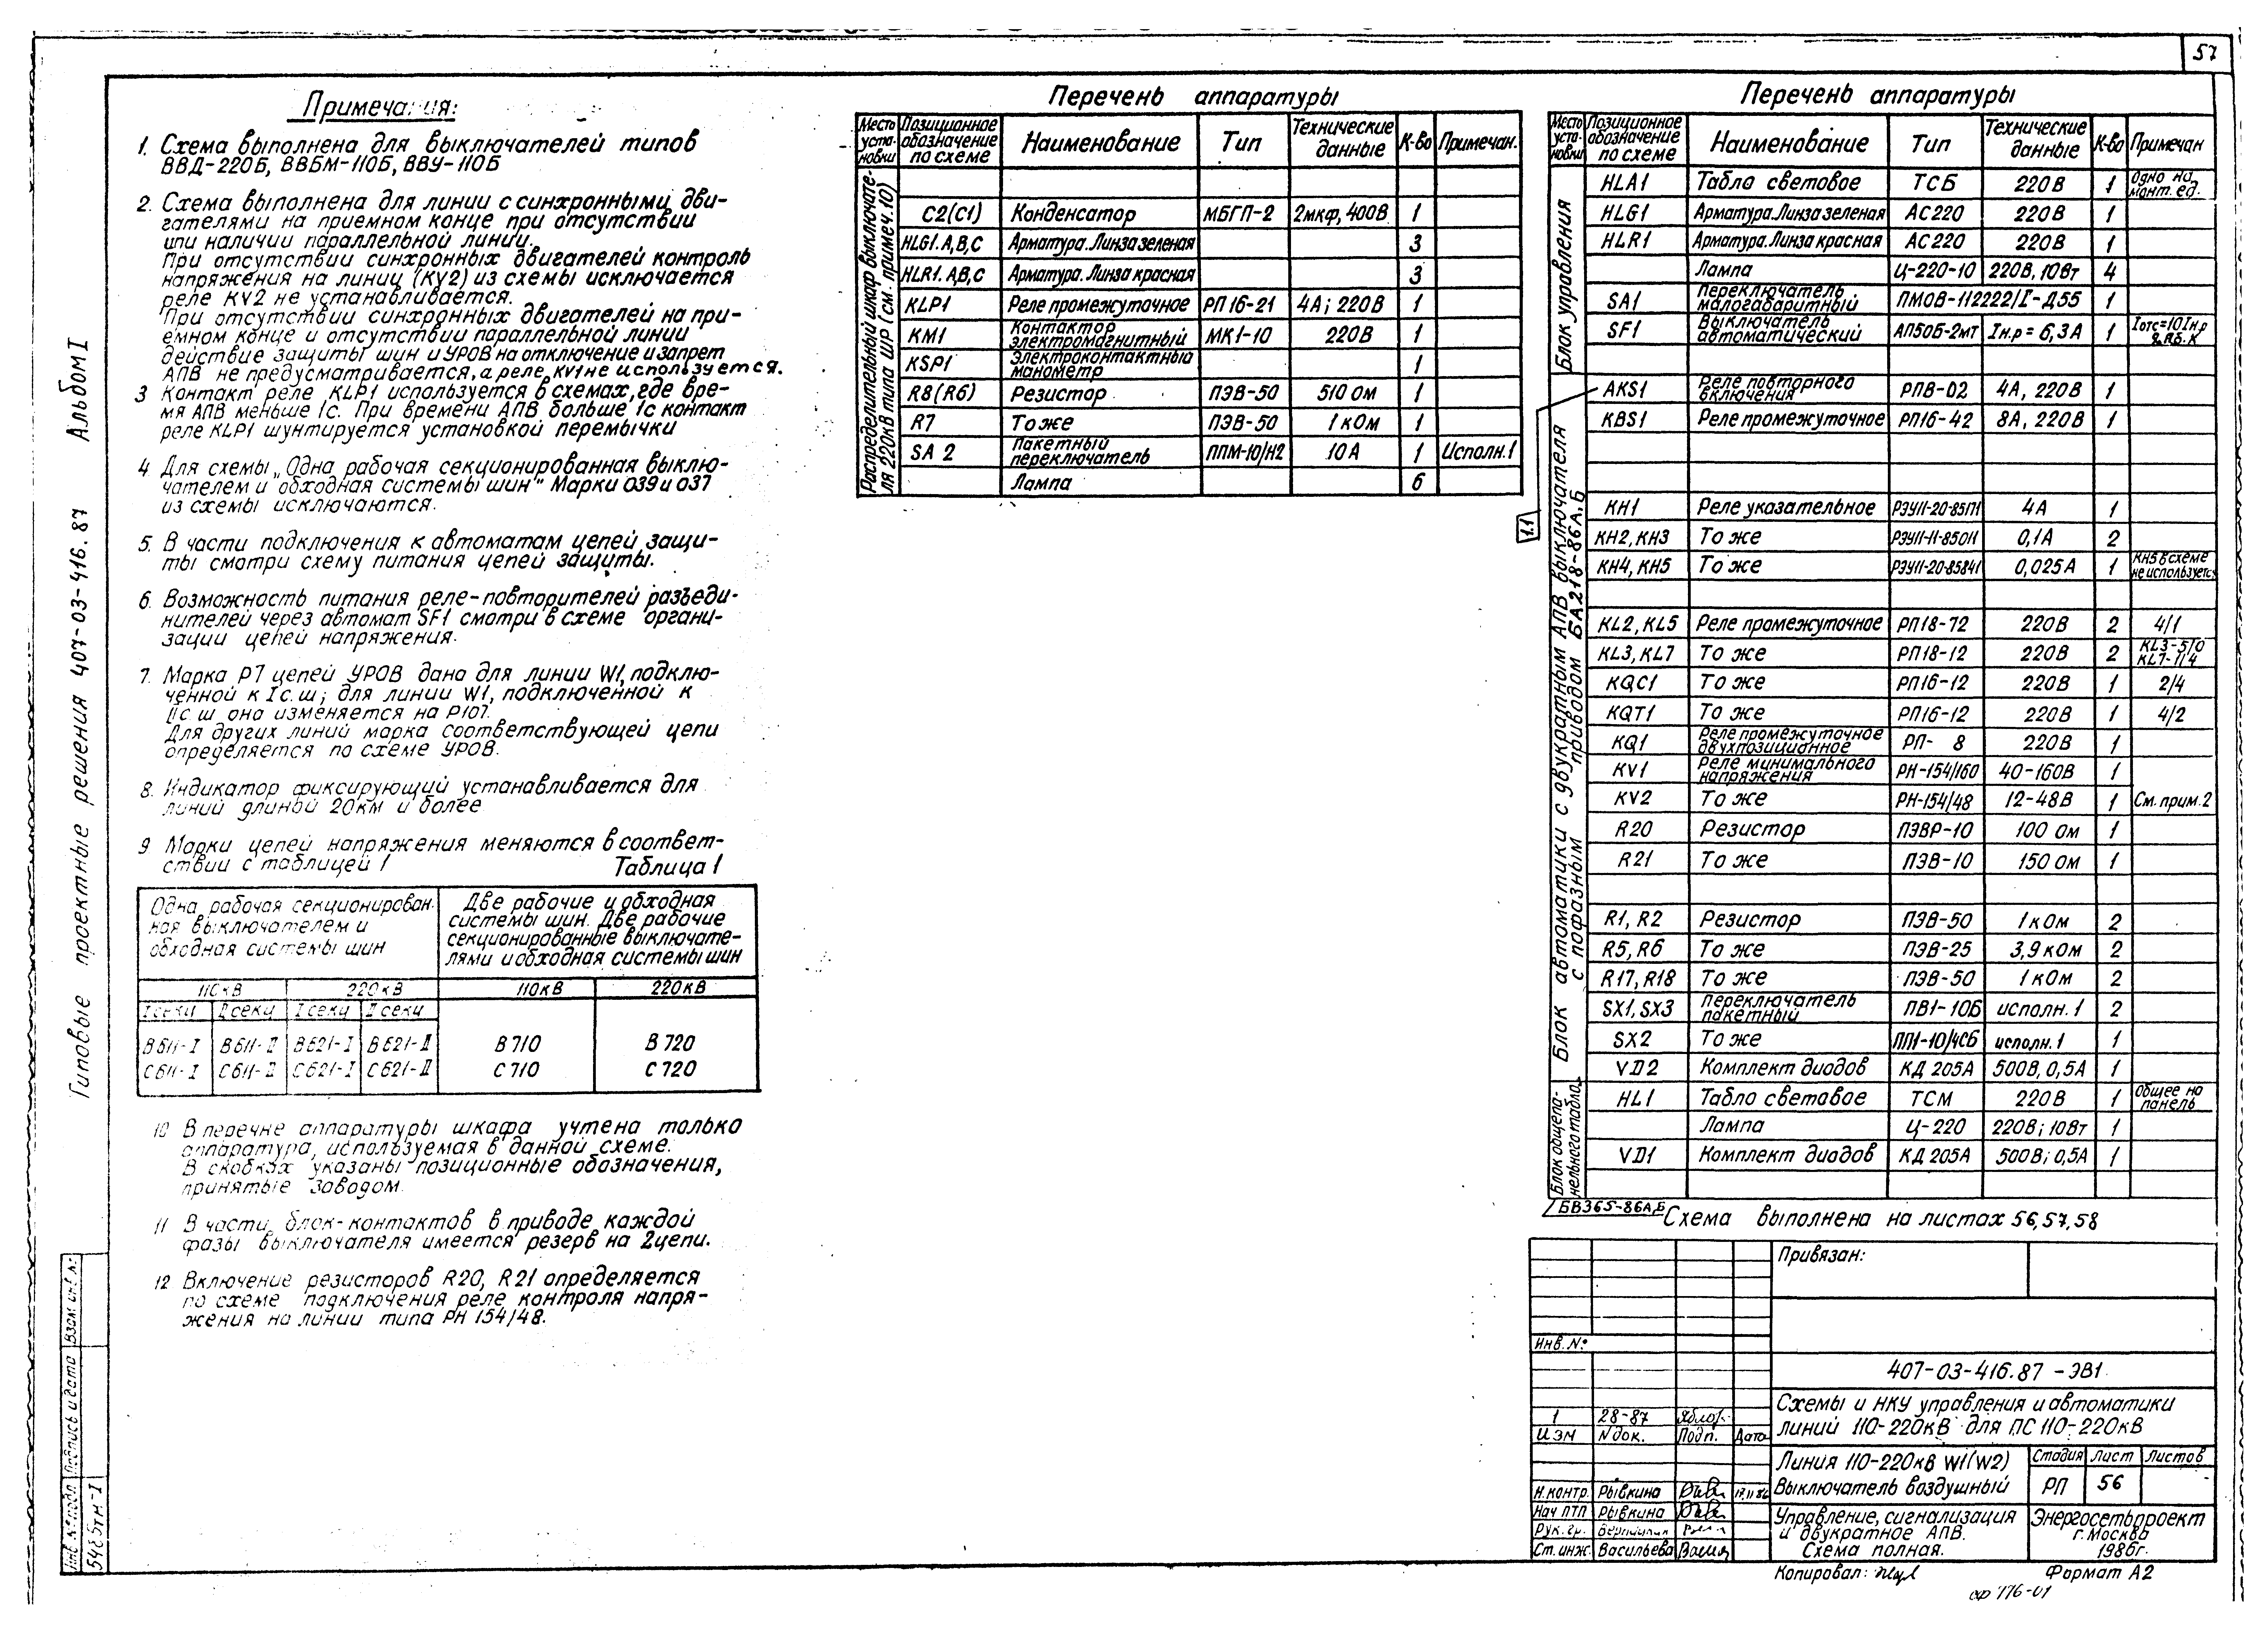 57
Альбом I
Типовые проектные решения 407-03-416.87
Примечания:
1. Схема выполнена для выключателей типов
ВВД-220Б, ВВБМ-110Б, ВВУ-110Б
2. Схема выполнена для линии с синхронными дви-
гателями на приемном конце при отсутствии
или наличии параллельной линии.
При отсутствии синхронных двигателей контроль
напряжения на линии (KV2) из схемы исключается
реле KV2 не устанавливается.
При отсутствии синхронных двигателей на при-
емном конце и отсутствии параллельной линии
действие защиты шин и УРОВ на отключение и запрет
АПВ не предусматривается, а реле KV1 не используется.
3 Контакт реле KLP1 используется в схемах, где вре-
мя АПВ меньше 1с. При времени АПВ больше 1с контакт
реле KLP1 шунтируется установкой перемычки
4 Для схемы „Одна рабочая секционированная выклю-
чателем и обходная системы шин" Марки 039 и 037
из схемы исключаются.
5. В части подключения к автоматам цепей защи-
ты смотри схему питания цепей защиты.
6. Возможность питания реле-повторителей разъеди-
нителей через автомат SF1 смотри в схеме органи-
зации цепей напряжения.
7. Марка Р7 цепей УРОВ дана для линии W1, подклю-
ченной к I с.ш; для линии W1, подключенной к
II с.ш она изменяется на Р107.
Для других линий марка соответствующей цепи
определяется по схеме УРОВ.
8. Индикатор фиксирующий устанавливается для
линий длиной 20км и более
9 Марки цепей напряжения меняются в соответ-
ствии с таблицей 1
Таблица 1
Одна рабочая секционирован.
ная выключателем и
обходная системы шин
Две рабочие и обходная
системы шин. Две рабочие
секционированные выключате-
лями и обходная системы шин
110кВ 220кВ 110кВ 220кВ
I секц II секц I секц II секц
В611-I В611-II В621-I В621-II В710 В720
С611-I С611-II С621-I С621-II С710 С720
10 В перечне аппаратуры шкафа учтена только
аппаратура, используемая в данной схеме.
В скобках указаны позиционные обозначения,
принятые заводом.
11 В части блок-контактов в приводе каждой
фазы выключателя имеется резерв на 2 цепи.
12 Включение резисторов R20, R21 определяется
по схеме подключения реле контроля напря-
жения на линии типа РН 154/48.
Перечень аппаратуры
Место установки Позиционное обозначение по схеме Наименование Тип Технические данные К-во Примечан.
Распределительный шкаф выключате-
ля 220кВ типа ШР (см. примеч. 10)
C2(C1) Конденсатор МБГП-2 2мкф, 400В 1
HLG1. A,B,C Арматура. Линза зеленая 3
HLR1. A,B,C Арматура. Линза красная 3
KLP1 Реле промежуточное РП 16-21 4А; 220В 1
KM1 Контактор электромагнитный МК1-10 220В 1
KSP1 Электроконтактный манометр 1
R8(R6) Резистор ПЭВ-50 510 Ом 1
R7 То же ПЭВ-50 1 кОм 1
SA 2 Пакетный переключатель ППМ-10/Н2 10А 1 Исполн. 1
Лампа 6
Перечень аппаратуры
Место установки Позиционное обозначение по схеме Наименование Тип Технические данные К-во Примечан
Блок управления
HLA1 Табло световое ТСБ 220В 1 Одно на монт. ед.
HLG1 Арматура. Линза зеленая АС220 220В 1
HLR1 Арматура. Линза красная АС220 220В 1
Лампа Ц-220-10 220В, 10Вт 4
SA1 Переключатель малогабаритный ПМОВ-112222/I-Д55 1
SF1 Выключатель автоматический АП50Б-2МТ Iн.р = 6,3А 1
1.1
Блок автоматики с двукратным АПВ выключателя
с пофазным приводом БА218-86А,Б
AKS1 Реле повторного включения РПВ-02 4А, 220В 1
KBS1 Реле промежуточное РП16-42 8А, 220В 1
KH1 Реле указательное РЭУ11-20-85П1 4А 1
KH2, KH3 То же РЭУ11-11-85011 0,1А 2
KH4, KH5 То же РЭУ11-20-85841 0,025А 1 KH5 в схеме не используется
KL2, KL5 Реле промежуточное РП18-72 220В 2 4/1
KL3, KL7 То же РП18-12 220В 2 KL3-5/0 KL7-1/4
KQC1 То же РП16-12 220В 1 2/4
KQT1 То же РП16-12 220В 1 4/2
KQ1 Реле промежуточное двухпозиционное РП- 8 220В 1
KV1 Реле минимального напряжения РН-154/160 40-160В 1
KV2 То же РН-154/48 12-48В 1 См. прим. 2
R20 Резистор ПЭВР-10 100 Ом 1
R21 То же ПЭВ-10 150 Ом 1
R1, R2 Резистор ПЭВ-50 1 кОм 2
R5, R6 То же ПЭВ-25 3,9 кОм 2
R17, R18 То же ПЭВ-50 1 кОм 2
SX1, SX3 Переключатель пакетный ПВ1-10Б исполн. 1 2
SX2 То же ПП1-10/ЧС6 исполн. 1 1
VD2 Комплект диодов КД 205А 500В, 0,5А 1
Блок общепа-
нельного табло
HL1 Табло световое ТСМ 220В 1 Общее на панель
Лампа Ц-220 220В; 10Вт 1
VD1 Комплект диодов КД 205А 500В; 0,5А 1
БВ365-86А,Б
Схема выполнена на листах 56, 57, 58
Привязан:
Инв. №:
407-03-416.87 - ЭВ1
Схемы и НКУ управления и автоматики
линий 110-220кВ для ПС 110-220кВ
1 28-87
Изм N док. Подп. Дата
Линия 110-220кВ W1(W2)
Выключатель воздушный
Стадия Лист Листов
РП 56
Н.контр. Рывкина
Нач ПТП Рывкина
Рук. гр.
Ст. инж. Васильева
Управление, сигнализация
и двукратное АПВ.
Схема полная.
Энергосетьпроект
г. Москва
1986г.
Копировал:
Формат А2
Инв № подл Подпись и дата Взам инв №